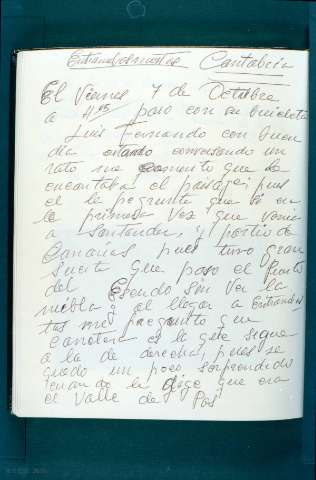 Entrambasmestas Cantabria
El Viernes 7 de Octubre
a paso con su bicicleta
Luis Fernando con buen
dia estando conversando un
rato me comento que le
encantaba el paisage; pues
el le pregunte que si era
la primera vez que venia
a Santander, y partio de
Canarias, pues tuvo gran
suerte que paso el Puerto
del Escudo sin ver la
niebla y al llegar a Entrambas
tas me pregunto que
carretera es la que sigue
a la de derecha, pues se
quedo un poco sorprendido
cuando le dige que era
el Valle de Pas